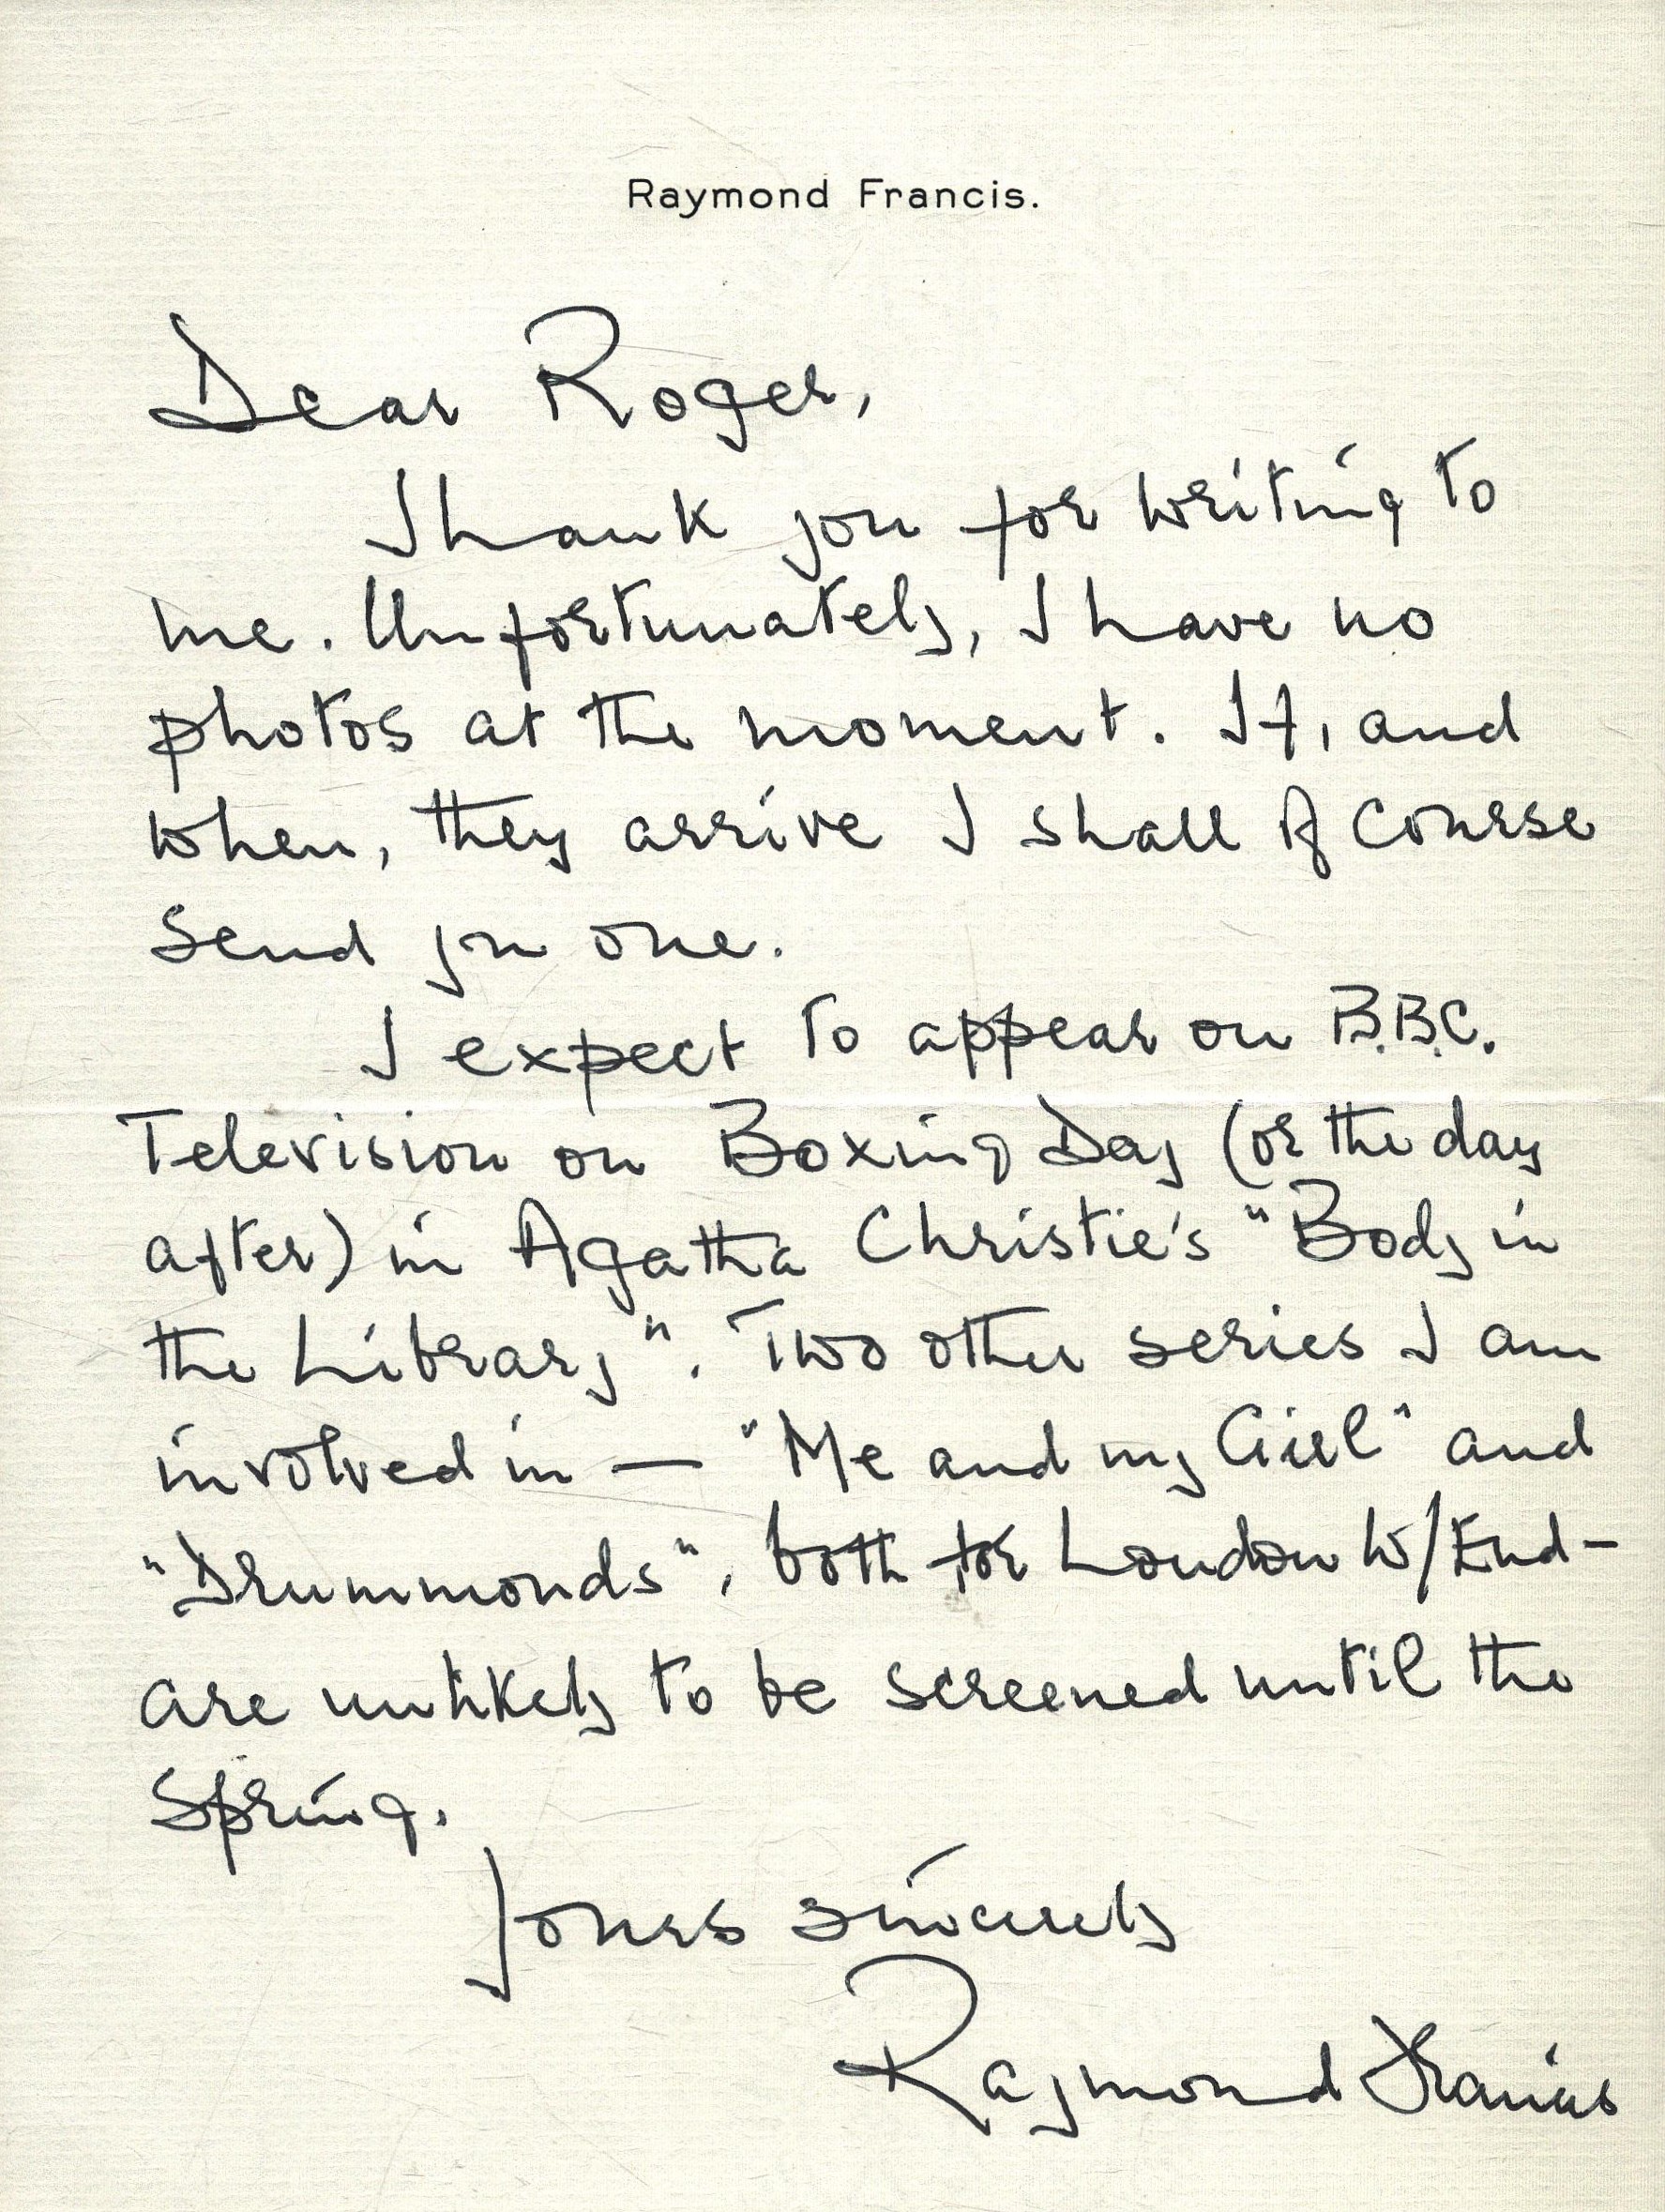 Raymond Francis.
Dear Roger,
Thank you for writing to
me. Unfortunately, I have no
photos at the moment. If, and
when, they arrive I shall of course
send you one.
I expect to appear on B.B.C.
Television on Boxing Day (or the day
after) in Agatha Christie's "Body in
the Library". Two other series I am
involved in — "Me and my Girl" and
"Drummonds", both for London W/End—
are unlikely to be screened until the
Spring.
Yours sincerely
Raymond Francis